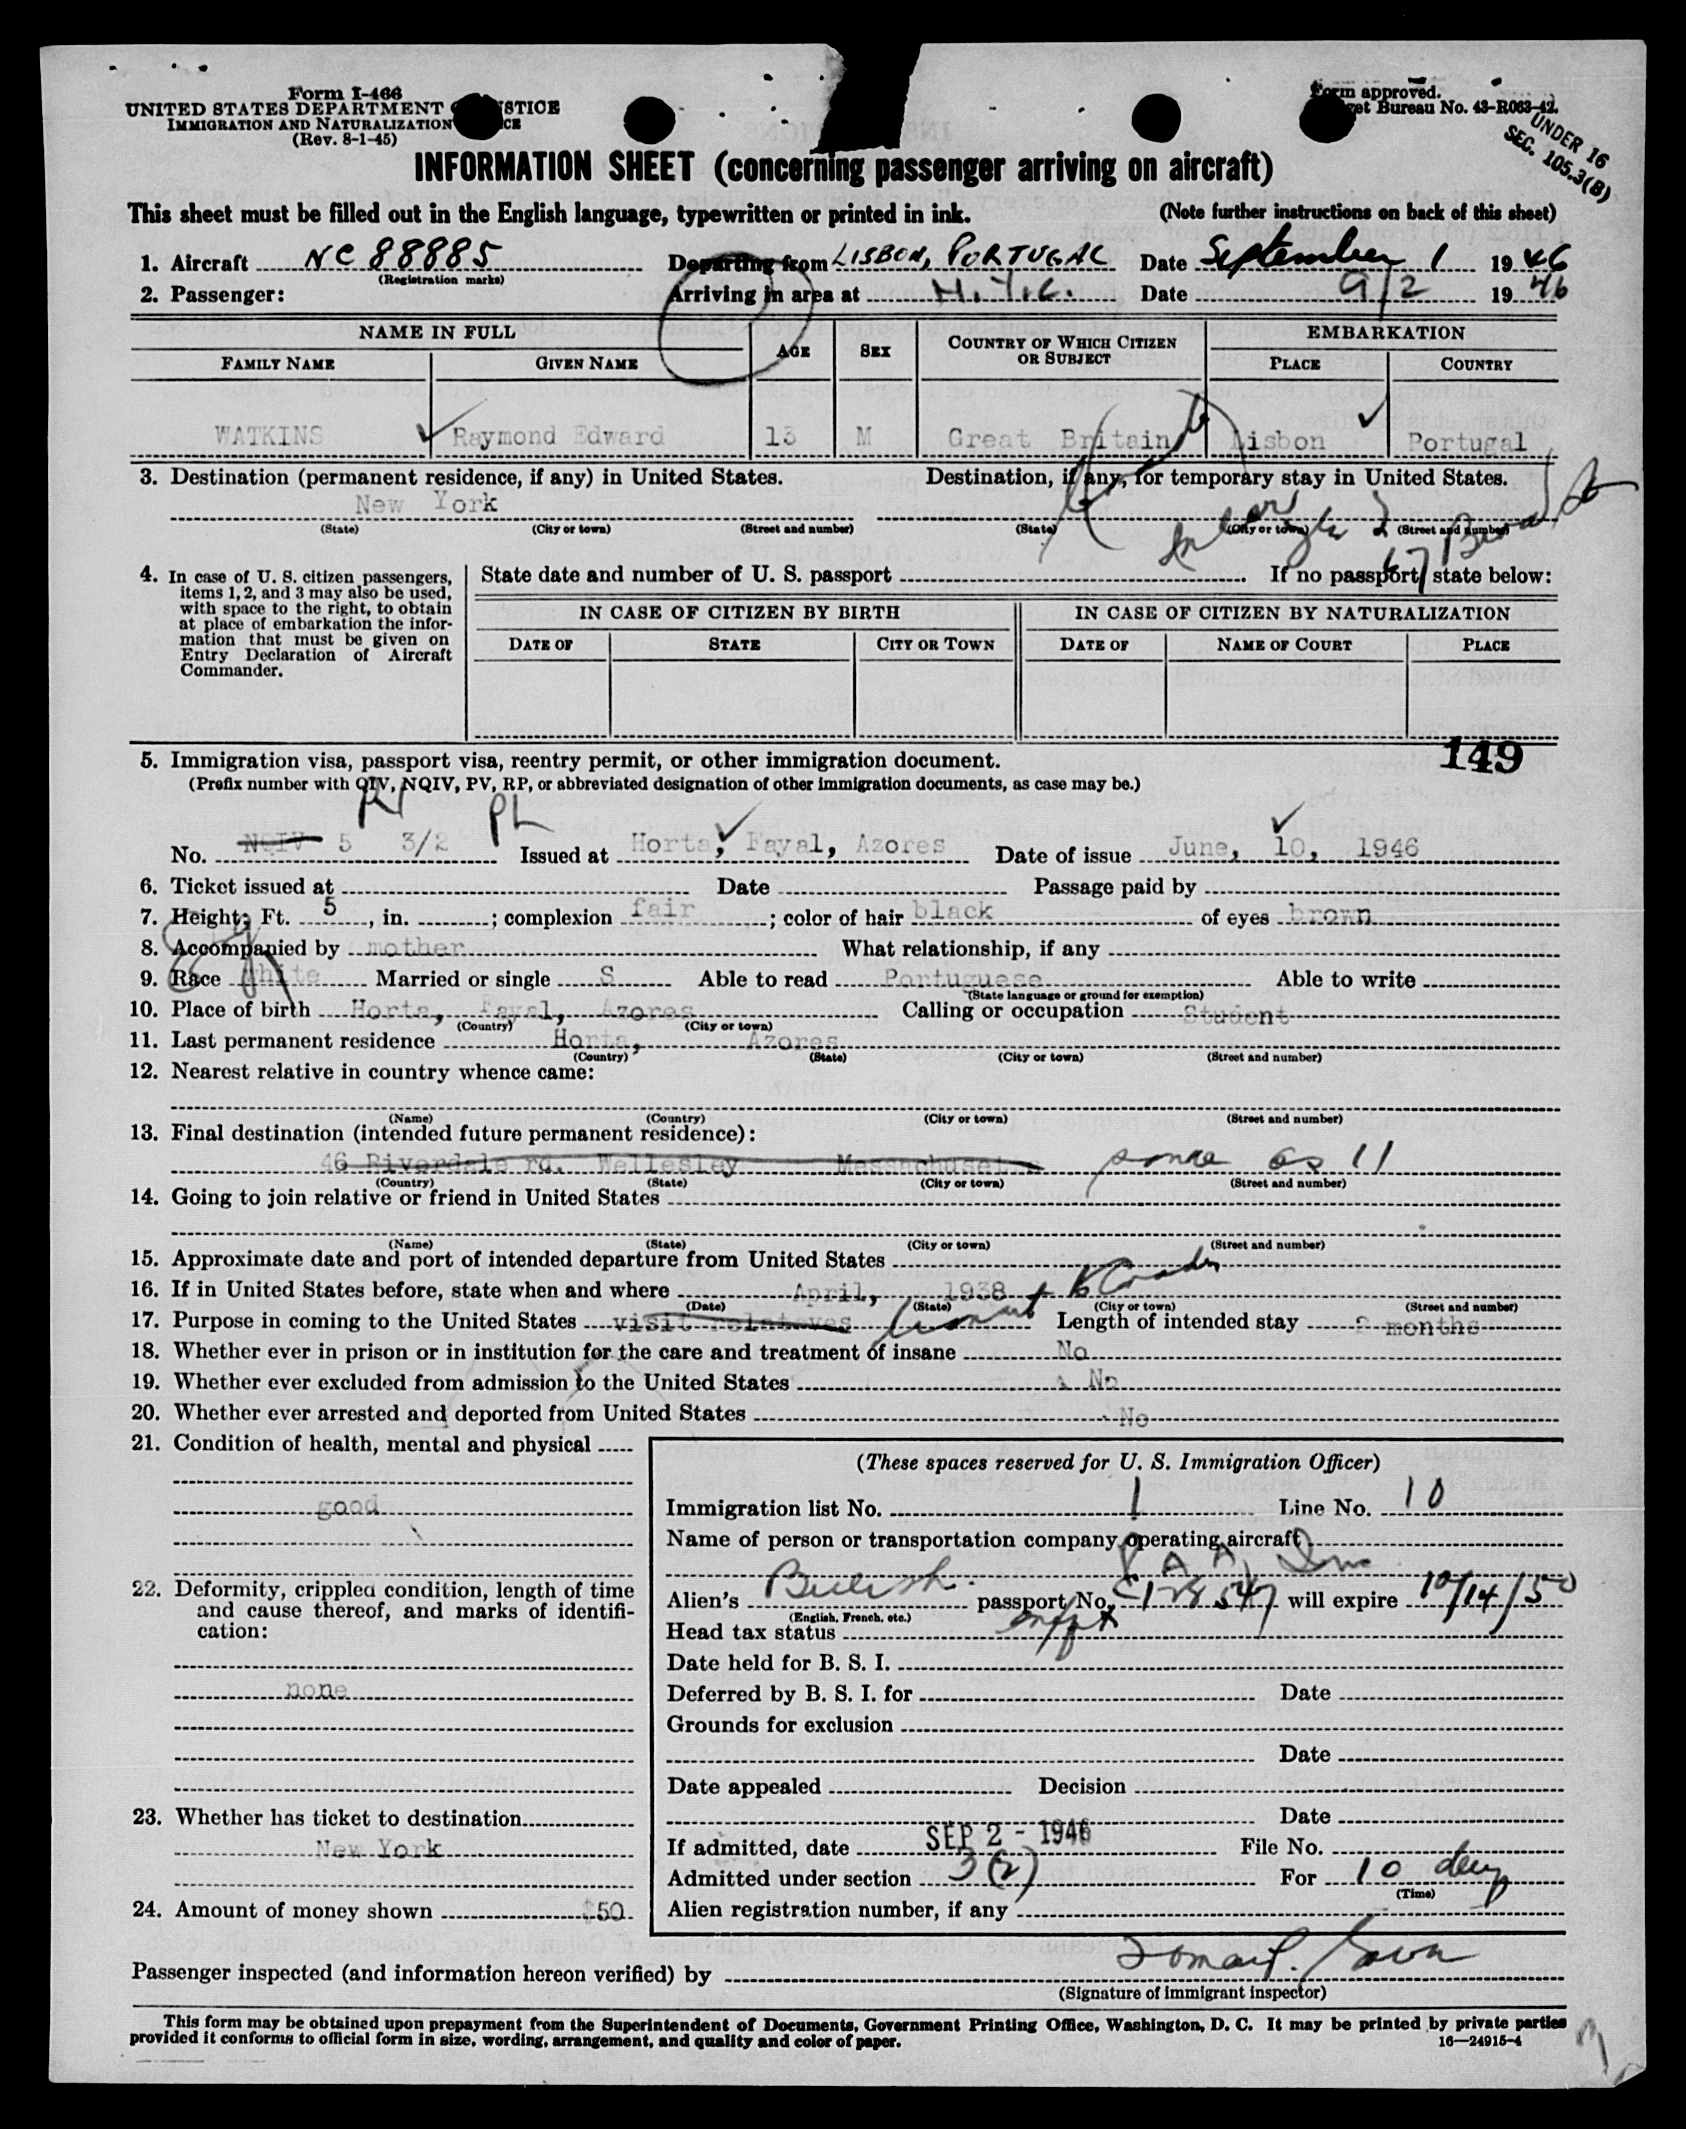 Form I-466
UNITED STATES DEPARTMENT STICE
IMMIGRATION AND NATURALIZATION CE
(Rev. 8-1-45)
Form approved.
get Bureau No. 43-R063-42.
UNDER 16
SEC. 105.3(B)
INFORMATION SHEET (concerning passenger arriving on aircraft)
This sheet must be filled out in the English language, typewritten or printed in ink. (Note further instructions on back of this sheet)
1. Aircraft NC 88885 Departing from LISBON, PORTUGAL Date September 1 1946
(Registration marks)
2. Passenger: Arriving in area at N.Y.C. Date 9/2 1946
NAME IN FULL AGE SEX COUNTRY OF WHICH CITIZEN OR SUBJECT EMBARKATION
FAMILY NAME GIVEN NAME PLACE COUNTRY
WATKINS Raymond Edward 13 M Great Britain Lisbon Portugal
3. Destination (permanent residence, if any) in United States. Destination, if any, for temporary stay in United States.
New York
(State) (City or town) (Street and number) (State) (City or town) (Street and number)
67 Broad St
4. In case of U. S. citizen passengers, items 1, 2, and 3 may also be used, with space to the right, to obtain at place of embarkation the information that must be given on Entry Declaration of Aircraft Commander.
State date and number of U. S. passport . If no passport, state below:
IN CASE OF CITIZEN BY BIRTH IN CASE OF CITIZEN BY NATURALIZATION
DATE OF STATE CITY OR TOWN DATE OF NAME OF COURT PLACE
149
5. Immigration visa, passport visa, reentry permit, or other immigration document.
(Prefix number with QIV, NQIV, PV, RP, or abbreviated designation of other immigration documents, as case may be.)
PV PL
No. NQIV 5 3/2 Issued at Horta, Fayal, Azores Date of issue June, 10, 1946
6. Ticket issued at Date Passage paid by
7. Height: Ft. 5, in. ; complexion fair ; color of hair black of eyes brown
8. Accompanied by mother What relationship, if any
9. Race white Married or single S Able to read Portuguese Able to write
(State language or ground for exemption)
10. Place of birth Horta, Fayal, Azores Calling or occupation Student
(Country) (City or town)
11. Last permanent residence Horta, Azores
(Country) (State) (City or town) (Street and number)
12. Nearest relative in country whence came:
(Name) (Country) (City or town) (Street and number)
13. Final destination (intended future permanent residence):
46 Riverdale rd. Wellesley Massachusets same as 11
(Country) (State) (City or town) (Street and number)
14. Going to join relative or friend in United States
(Name) (State) (City or town) (Street and number)
15. Approximate date and port of intended departure from United States
16. If in United States before, state when and where April, 1938
(Date) (State) (City or town) (Street and number)
17. Purpose in coming to the United States visit relateves transit to Canada Length of intended stay 2 months
18. Whether ever in prison or in institution for the care and treatment of insane No
19. Whether ever excluded from admission to the United States No
20. Whether ever arrested and deported from United States No
21. Condition of health, mental and physical
good
22. Deformity, crippled condition, length of time and cause thereof, and marks of identification:
none
23. Whether has ticket to destination
New York
24. Amount of money shown $50
(These spaces reserved for U. S. Immigration Officer)
Immigration list No. 1 Line No. 10
Name of person or transportation company operating aircraft
P A A, Inc
Alien's British passport No. C128547 will expire 10/14/50
(English, French, etc.)
Head tax status
Date held for B. S. I.
Deferred by B. S. I. for Date
Grounds for exclusion
Date
Date appealed Decision
Date
If admitted, date SEP 2 - 1946 File No.
Admitted under section 3(2) For 10 days
(Time)
Alien registration number, if any
Passenger inspected (and information hereon verified) by
(Signature of immigrant inspector)
This form may be obtained upon prepayment from the Superintendent of Documents, Government Printing Office, Washington, D. C. It may be printed by private parties
provided it conforms to official form in size, wording, arrangement, and quality and color of paper. 16—24915-4